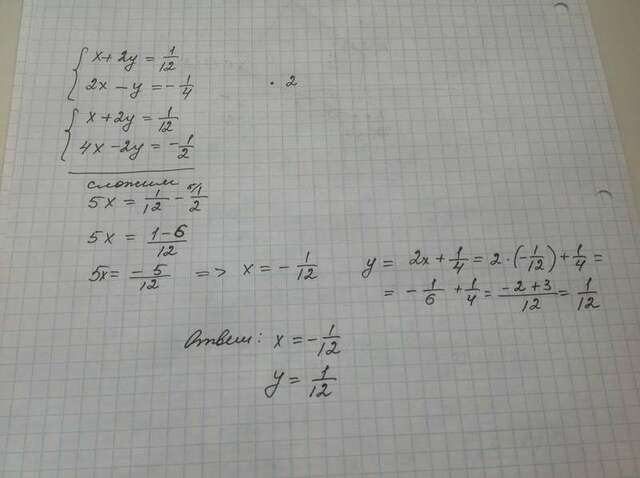 x + 2y = 1/12
2x - y = -1/4 · 2
x + 2y = 1/12
4x - 2y = -1/2
сложим
5x = 1/12 - 6\1/2
5x = 1-6/12
5x = -5/12 => x = -1/12
y = 2x + 1/4 = 2 · (-1/12) + 1/4 =
= -1/6 + 1/4 = -2+3/12 = 1/12
Ответ: x = -1/12
y = 1/12